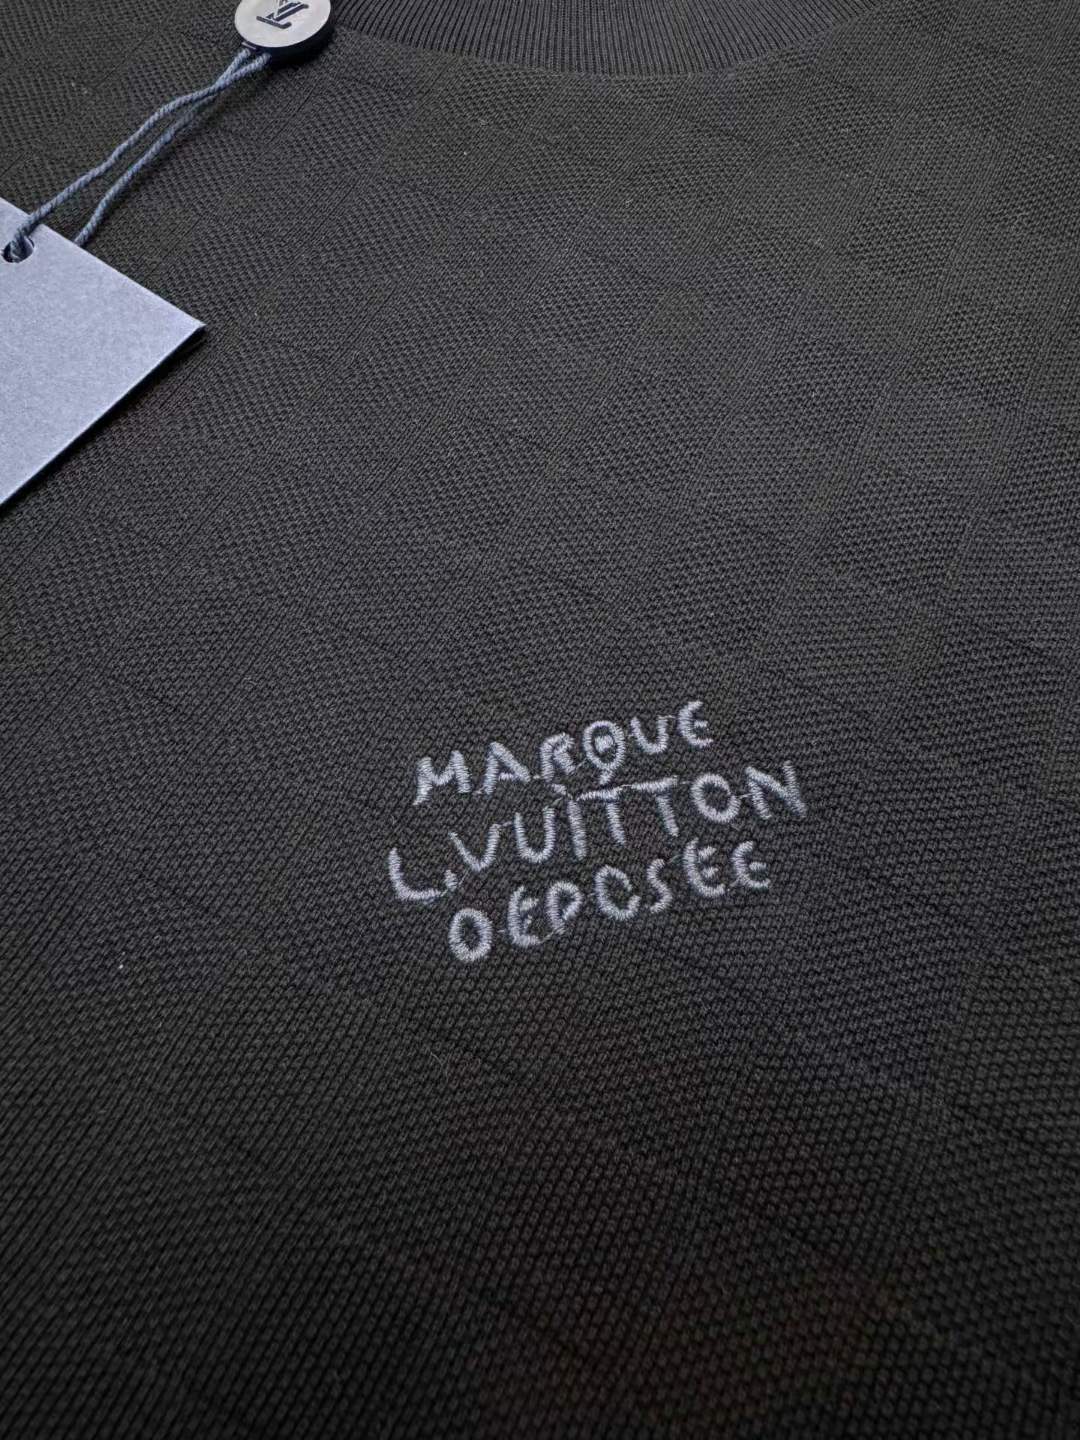 LV
MARQUE
L.VUITTON
DEPOSEE